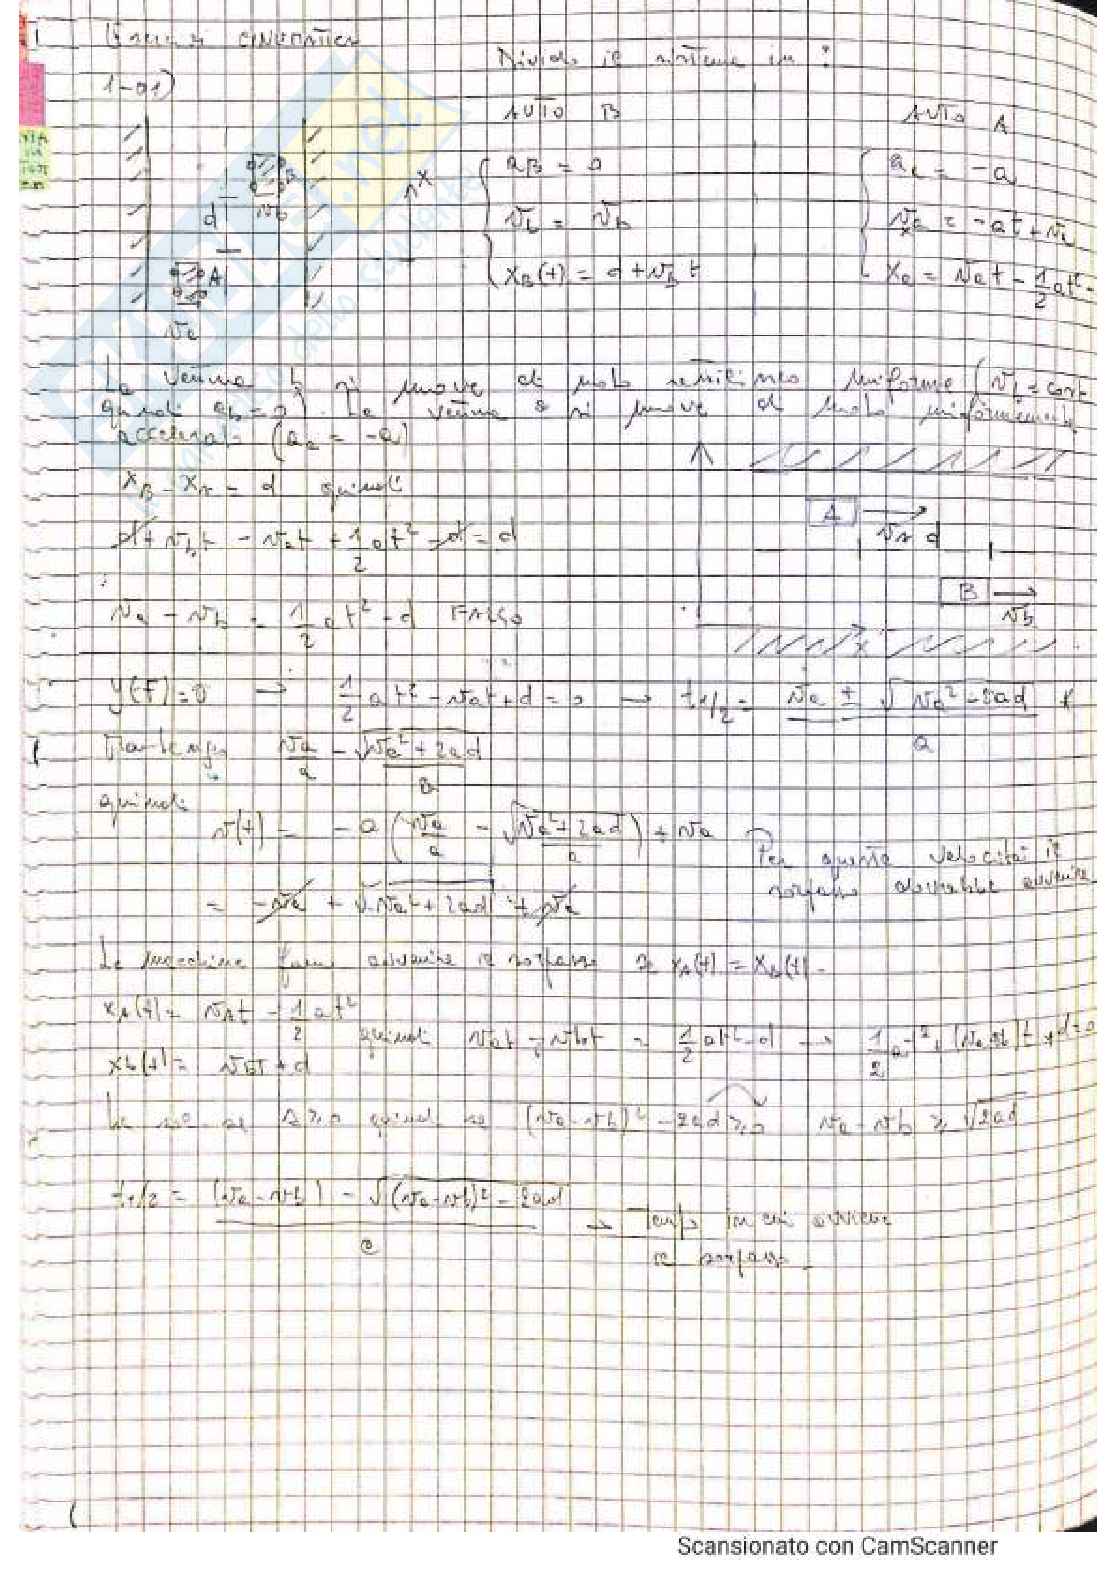 1
Esercizi CINEMATICA
Divido il sistema in :
1-01)
AUTO B
AUTO A
a_B = 0
a_a = -a
v_b = v_b
v_a = -at + v_a
x_B(t) = d + v_b t
x_a = v_a t - 1/2 at² -
d
B
v_b
x
A
v_a
La vettura b si muove di moto rettilineo uniforme (v_b = cost
quindi a_b = 0). La vettura a si muove di moto uniformemente
accelerato (a_a = -a)
x_B - x_A = d quindi
d + v_b t - v_a t + 1/2 at² - d = d
A
v_A d
B
v_b
x
v_a - v_b = 1/2 at² - d FALSO
y(t) = 0 → 1/2 at² - v_a t + d = 0 → t_1/2 = v_a ± √(v_a² - 2ad) / a
v_a/a - √(v_a² + 2ad)/a
quindi
v(t) = -a (v_a/a - √(v_a² + 2ad)/a) + v_a
Per questa velocità il
sorpasso dovrebbe avvenire
= -v_a + √(v_a² + 2ad) + v_a
Le macchine fanno avvenire il sorpasso x_A(t) = x_b(t)
x_A(t) = v_A t - 1/2 at²
x_b(t) = v_B t + d
quindi v_a t - v_b t = 1/2 at² - d → 1/2 at² + (v_a v_b)t + d = 0
se Δ ≥ 0 quindi se (v_a - v_b)² - 2ad ≥ 0 v_a - v_b ≥ √2ad
t_1/2 = (v_a - v_b) - √((v_a - v_b)² - 2ad) / a → Tempo in cui avviene
il sorpasso.
Scansionato con CamScanner